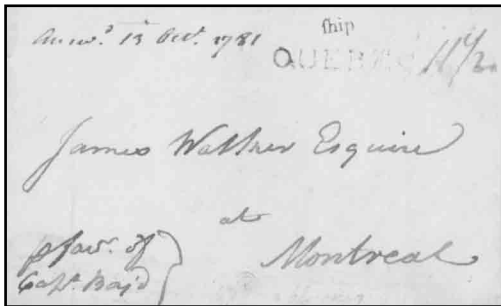 Answ.d 13 Oct.r 1781
ship
QUEBEC 11 1/2
James Esquire
at
Montreal
p fav.r of
Capt. Boyd